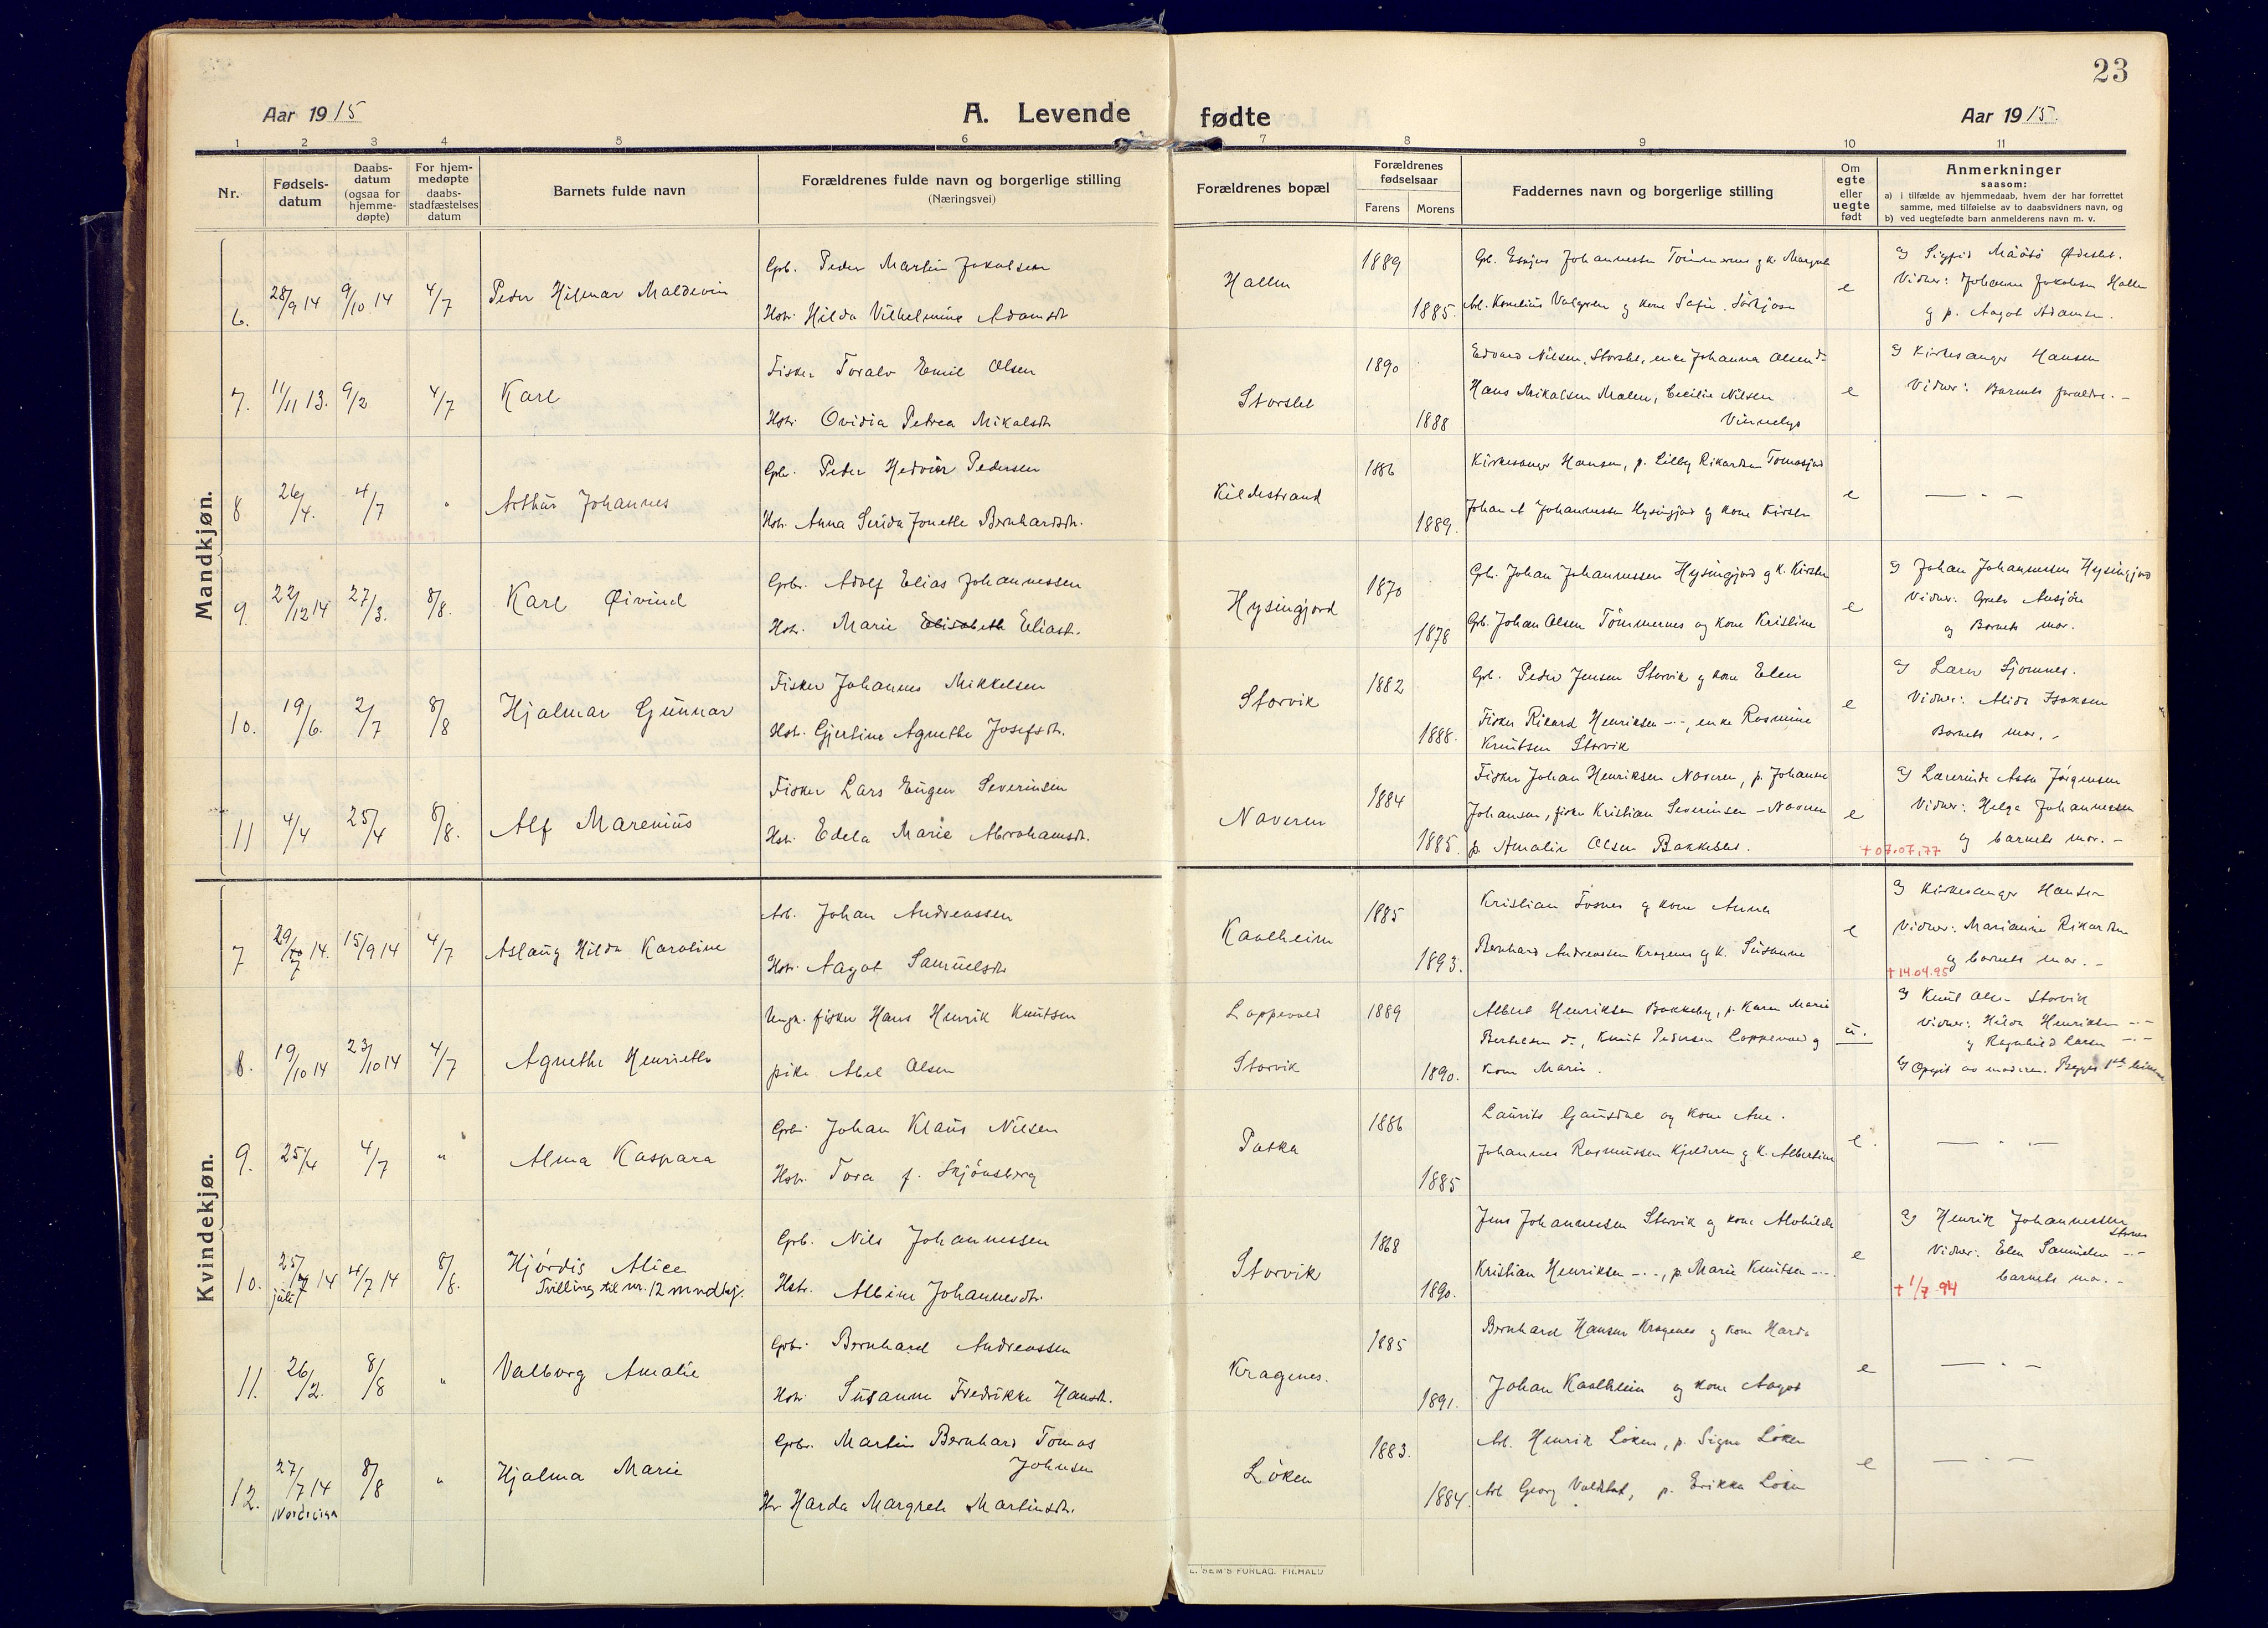 23
Aar 1915
A. Levende fødte
Aar 1915.
1 2 3 4 5 6 7 8 9 10 11
Nr.
Fødsels-
datum
Daabs-
datum
(ogsaa for
hjemme-
døpte)
For hjem-
medøpte
daabs-
stadfæstelses
datum
Barnets fulde navn
Forældrenes fulde navn og borgerlige stilling
(Næringsvei)
Forældrenes bopæl
Forældrenes
fødselsaar
Farens Morens
Faddernes navn og borgerlige stilling
Om
egte
eller
uegte
født
Anmerkninger
saasom:
a) i tilfælde av hjemmedaab, hvem der har forrettet
samme, med tilføielse av to daabsvidners navn, og
b) ved uegtefødte barn anmelderens navn m. v.
Mandkjøn.
6. 28/9 14 9/10 14 4/7 Peder Hilmar Maldevin
Grb. Peder Martin Jakobsen
Hstr. Hilda Vilhelmine Adamsdtr
Hallen
1889
1885.
Johannessen
Arb. Kornelius Valgren og kone
e
Vidner: Johanne Jakobsen Hallen
og p. Aagot Adamsen.
7. 11/11 13. 9/2 4/7 Karl
Fisker Toralv Emil Olsen
Hstr. Ovidia Petrea Mikalsdtr
Storslet
1890
1888
Edvard Nilsen, Storslet, enke Johanna Olsen do
Hans Mikalsen Malen, Cecilie Nilsen
e
a) Kirkesanger Hansen
Vidner: Barnets foreldre. -
8 26/4. 4/7 " Arthur Johannes
Grb. Peder Hedvin Pedersen
Hstr. Anna Serida Jonette Bernhardsdtr.
Kildestrand
1886
1889.
Kirkesanger Hansen, p. Lilly Rikardsen
Johan A Johannessen Hysingjord og kone Kirsten
e
— " —
9. 22/12 14 27/3. 8/8. Karl Øivind
Grbr. Adolf Elias Johannessen
Hstr. Marie Elisabeth Eliasdt.
Hysingjord
1870
1878
Grb. Johan Johannessen Hysingjord og k. Kirsten
Grb. Johan Olsen Tömmernes og kone Kristine
e
a) Johan Johannessen Hysingjord
Vidner: Grete
og Barnets mor.
10. 19/6. 2/7 8/8 Hjalmar Gunnar
Fisker Johannes Mikkelsen
Hstr. Gjertine Agnethe Josefsdtr.
Storvik
1882
1888.
Grb. Peder Jensen Storvik og kone Elen
Fisker Rikard Henriksen -"-, enke Rasmine
Knutsen Storvik
e
a) Lærer Sjomnes.
Vidner: Alida Isaksen
Barnets mor. -
11 4/4 25/4 8/8. Alf Marenius
Fisker Lars Eugen Severinsen
Hstr. Edela Marie Abrahamsdtr.
Naveren
1884
1885.
Fisker Johan Henriksen Naveren, p. Johanne
Johansen, fisker Kristian Severinsen - Naveren
p. Amalie Olsen Bakkeslet.
e
a) Lærerinde Assa Jörgensen
Vidner: Helga Johannessen
og barnets mor. -
+07.07.77
Kvindekjøn.
7 29/7 14. 15/9 14 4/7 Aslaug Hilda Karoline
Arb. Johan Andreassen
Hstr. Aagot Samuelsdtr
Kaalheim
1885
1893.
Kristian Fosnes og kone Anna
Bernhard Andreassen Kragenes og k. Susanne
e
a) Kirkesanger Hansen
Vidner: Marianne Rikardsen
og barnets mor. -
+14.04.95
8. 19/10 14 23/10 14 4/7 Agnethe Henriette
Ungk. fisker Hans Henrik Knutsen
pike Abel Olsen
Loppevold
Storvik
1889
1890.
Albert Henriksen Bakkeby, p. Karen Marie
Bertelsen do, Knut Pedersen Loppevold og
kone Marie.
u.
a) Knut Olsen Storvik
Vidner: Hilda Henriksen -"-
og Ragnhild Larsen -"-
b) Opgit av moderen. Begges 1ste
9. 25/4 4/7 " Alma Kaspara
Grbr. Johan Klaus Nilsen
Hstr. Tora f. Skjönsberg
Potka
1886
1885
Laurits Gausdal og kone Ane.
Johannes Rasmussen Kjelderen og k. Albertine
e.
— " —
10. 25/7 14 juli 4/7 14 8/8. Hjördis Alice
Tvilling til nr. 12 mndkj.
Grb. Nils Johannessen
Hstr. Albine Johannesdtr.
Storvik
1868
1890.
Jens Johannessen Storvik og kone Alvhilde
Kristian Henriksen -"-, p. Marie Knutsen -"-
e
a) Henrik Johannessen
Vidner: Elen Samuelsen -"-
barnets mor. -
+ 1/7 94
11. 26/2. 8/8 " Valborg Amalie
Grbr. Bernhard Andreassen
Hstr Susanne Fredrikke Hansdtr.
Kragenes.
1885
1891.
Bernhard Hansen Kragenes og kone Harda
Johan Kaalheim og kone Aagot
e
— " —
12. 27/7 14 8/8 " Hjalma Marie
Grbr. Martin Bernhard Tomas
Johnsen
Hstr Harda Margrete Martinsdtr.
Löken
1883.
1884.
Arb. Henrik Löken, p. Signe Löken
Arb Georg, p. Erikka Löken
e
— " —
E. SEM'S FORLAG. FR.HALD